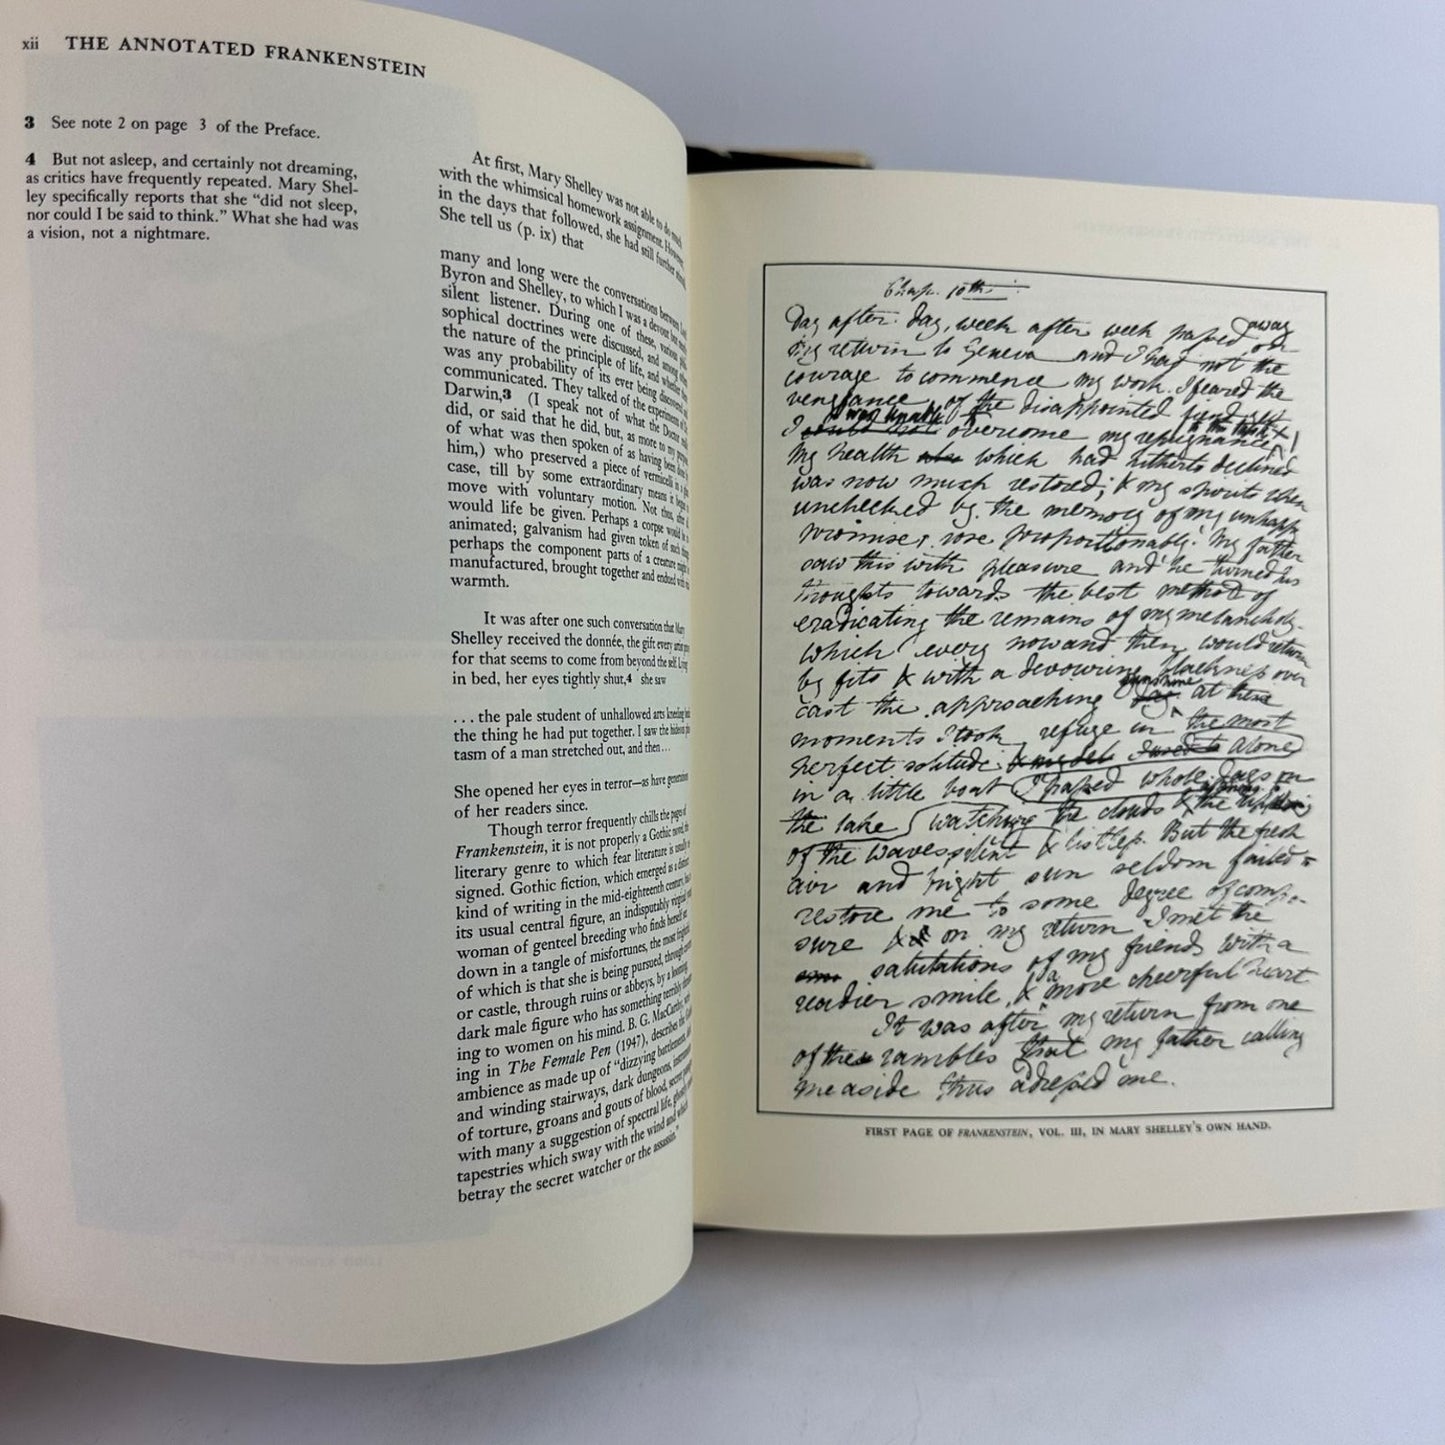 xii THE ANNOTATED FRANKENSTEIN
3 See note 2 on page 3 of the Preface.
4 But not asleep, and certainly not dreaming,
as critics have frequently repeated. Mary Shel-
ley specifically reports that she “did not sleep,
nor could I be said to think.” What she had was
a vision, not a nightmare.
At first, Mary Shelley was not able to do much
with the whimsical homework assignment. However,
in the days that followed, she had still further
She tell us (p. ix) that
many and long were the conversations between
Byron and Shelley, to which I was a devout but
silent listener. During one of these, various
sophical doctrines were discussed, and among
the nature of the principle of life, and whether
was any probability of its ever being discovered
communicated. They talked of the experiments of
Darwin,3 (I speak not of what the Doctor
did, or said that he did, but, as more to my
of what was then spoken of as having been done
him,) who preserved a piece of vermicelli in a
case, till by some extraordinary means it began
move with voluntary motion. Not thus, after
would life be given. Perhaps a corpse would be
animated; galvanism had given token of such
perhaps the component parts of a creature might
manufactured, brought together and endued with
warmth.
It was after one such conversation that Mary
Shelley received the donnée, the gift every artist
for that seems to come from beyond the self. Lying
in bed, her eyes tightly shut,4 she saw
...the pale student of unhallowed arts kneeling
the thing he had put together. I saw the hideous
tasm of a man stretched out, and then...
She opened her eyes in terror—as have generations
of her readers since.
Though terror frequently chills the pages of
Frankenstein, it is not properly a Gothic novel, the
literary genre to which fear literature is usually
signed. Gothic fiction, which emerged as a distinct
kind of writing in the mid-eighteenth century, has
its usual central figure, an indisputably virginal
woman of genteel breeding who finds herself
down in a tangle of misfortunes, the most frightful
of which is that she is being pursued, through
or castle, through ruins or abbeys, by a looming
dark male figure who has something terribly
ing to women on his mind. B. G. MacCarthy,
ing in The Female Pen (1947), describes the
ambience as made up of “dizzying battlements,
and winding stairways, dark dungeons, instruments
of torture, groans and gouts of blood, secret
with many a suggestion of spectral life, ghostly
tapestries which sway with the wind and which
betray the secret watcher or the assassin.”
Chap. 10th
Day after day, week after week passed away on
my return to Geneva and I had not the
courage to commence my work. I feared the
vengeance of the disappointed fiend yet
I was unable to overcome my repugnance to the task
My health which had hitherto declined
was now much restored; & my spirits when
unchecked by the memory of my unhappy
promise, rose proportionably. My father
saw this with pleasure and he turned his
thoughts towards the best method of
eradicating the remains of my melancholy
which every now and then would return
by fits & with a devouring blackness over
cast the approaching sunshine at these
moments I took refuge in the most
perfect solitude. alone
in a little boat I passed whole days on
the lake watching the clouds & the rippling
of the waves silent & listless. But the fresh
air and bright sun seldom failed to
restore me to some degree of compo-
sure & on my return I met the
salutations of my friends with a
readier smile, & a more cheerful heart
It was after my return from one
of these rambles that my father calling
me aside thus adressed me.
FIRST PAGE OF FRANKENSTEIN, VOL. III, IN MARY SHELLEY'S OWN HAND.